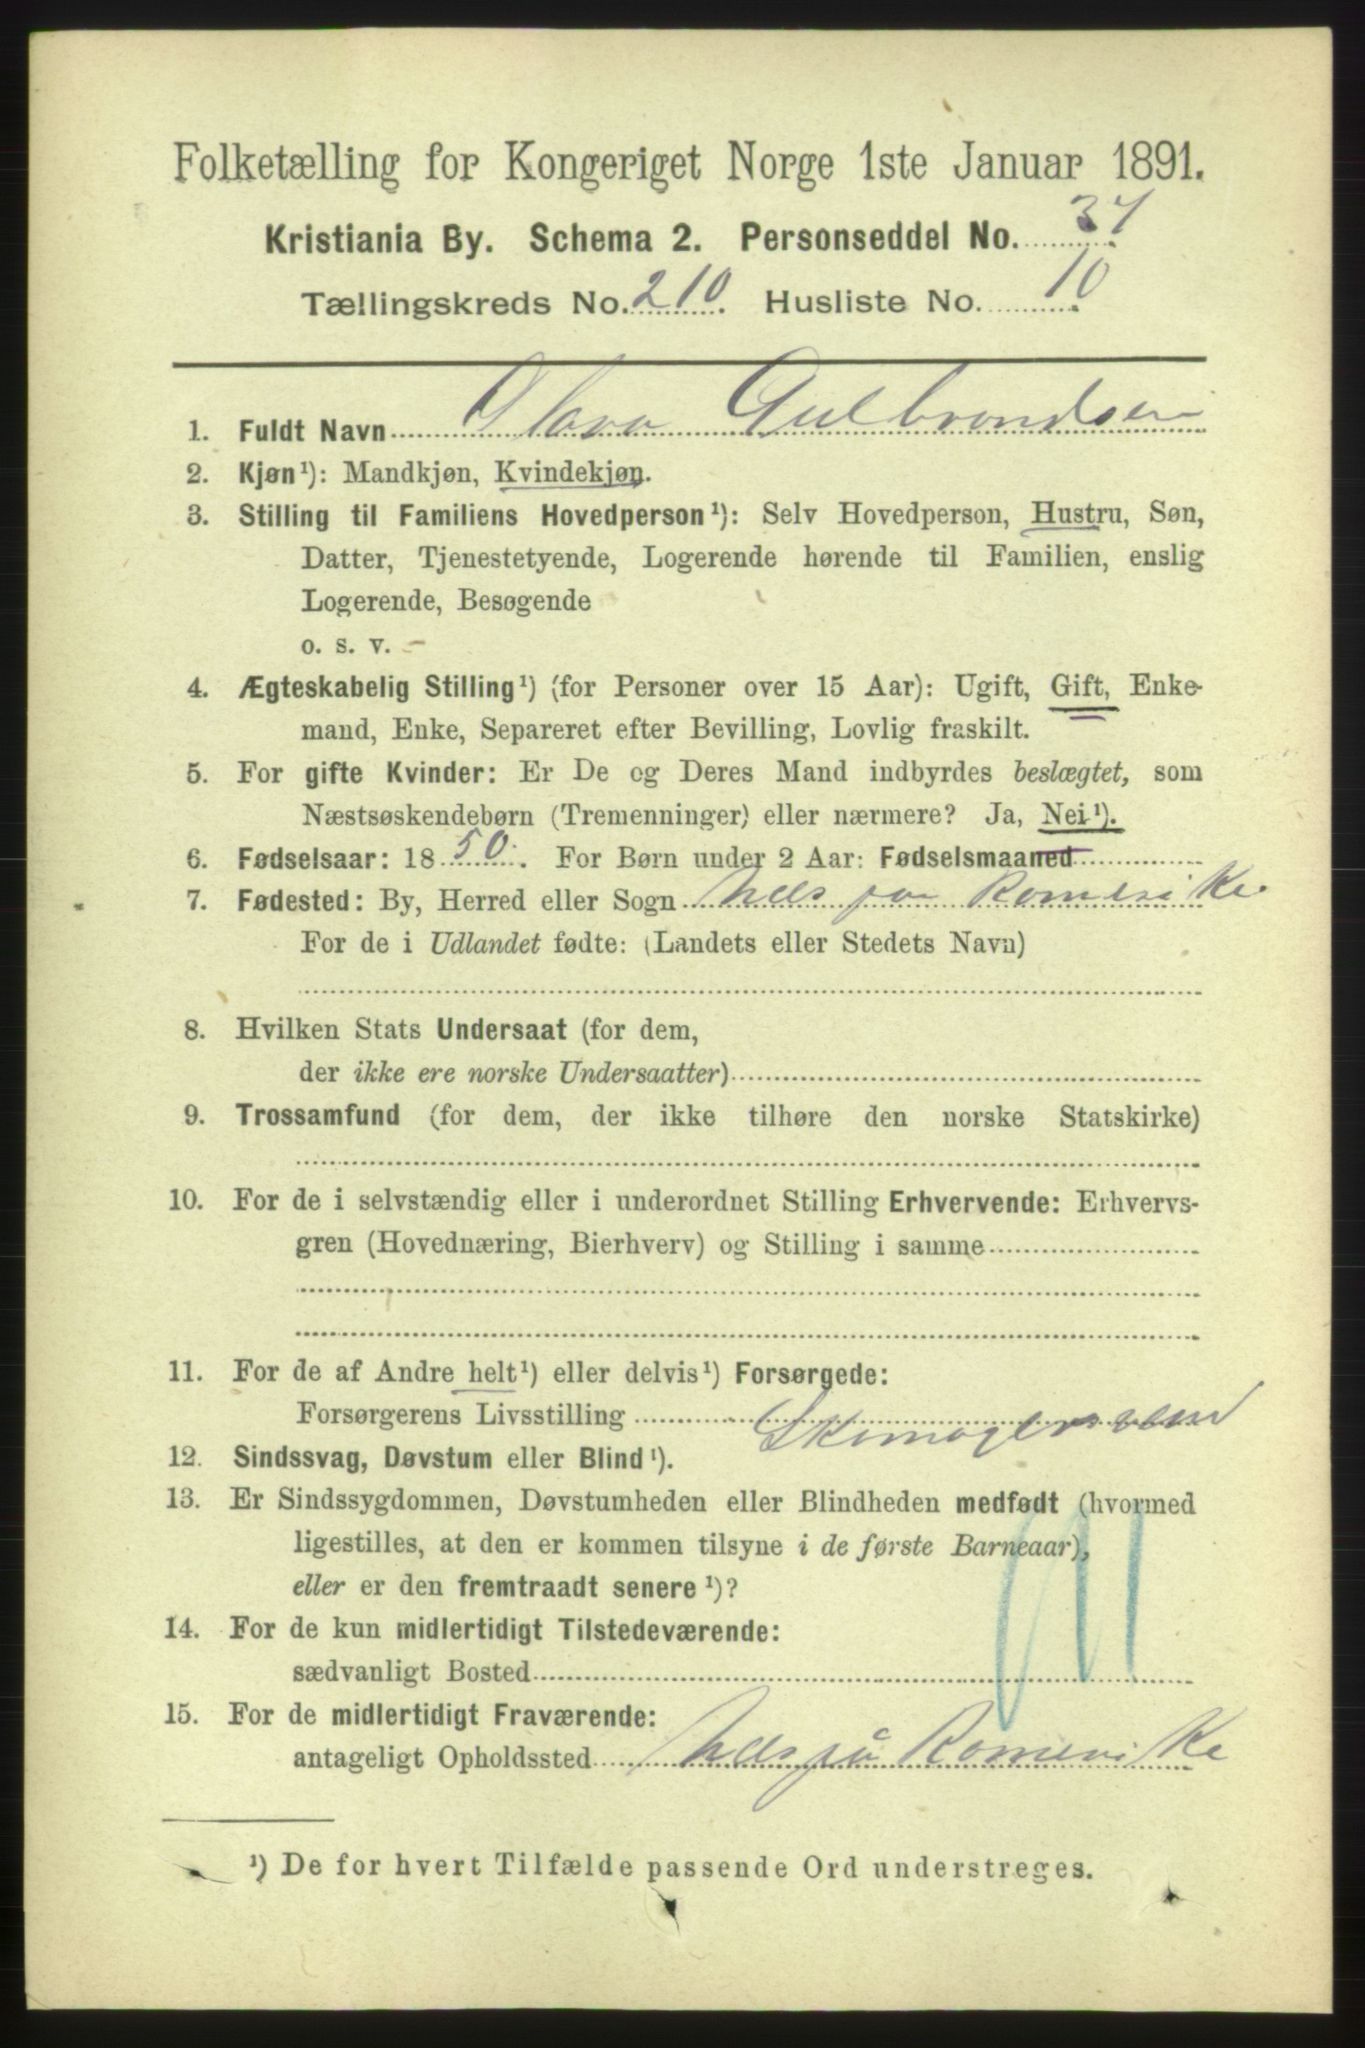 Folketælling for Kongeriget Norge 1ste Januar 1891.
Kristiania By. Schema 2. Personseddel No. 37.
Tællingskreds No. 210. Husliste No. 10.
1. Fuldt Navn Gulbrandsen
2. Kjøn¹): Mandkjøn, Kvindekjøn.
3. Stilling til Familiens Hovedperson¹): Selv Hovedperson, Hustru, Søn,
Datter, Tjenestetyende, Logerende hørende til Familien, enslig
Logerende, Besøgende
o. s. v.
4. Ægteskabelig Stilling¹) (for Personer over 15 Aar): Ugift, Gift, Enke-
mand, Enke, Separeret efter Bevilling, Lovlig fraskilt.
5. For gifte Kvinder: Er De og Deres Mand indbyrdes beslægtet, som
Næstsøskendebørn (Tremenninger) eller nærmere? Ja, Nei¹).
6. Fødselsaar: 1850. For Børn under 2 Aar: Fødselsmaaned
7. Fødested: By, Herred eller Sogn Næs paa Romerike
For de i Udlandet fødte: (Landets eller Stedets Navn)
8. Hvilken Stats Undersaat (for dem,
der ikke ere norske Undersaatter)
9. Trossamfund (for dem, der ikke tilhøre den norske Statskirke)
10. For de i selvstændig eller i underordnet Stilling Erhvervende: Erhvervs-
gren (Hovednæring, Bierhverv) og Stilling i samme
11. For de af Andre helt¹) eller delvis¹) Forsørgede:
Forsørgerens Livsstilling Skomagersvend
12. Sindssvag, Døvstum eller Blind¹).
13. Er Sindssygdommen, Døvstumheden eller Blindheden medfødt (hvormed
ligestilles, at den er kommen tilsyne i de første Barneaar),
eller er den fremtraadt senere¹)?
14. For de kun midlertidigt Tilstedeværende:
sædvanligt Bosted
15. For de midlertidigt Fraværende:
antageligt Opholdssted Næs på Romerike
¹) De for hvert Tilfælde passende Ord understreges.